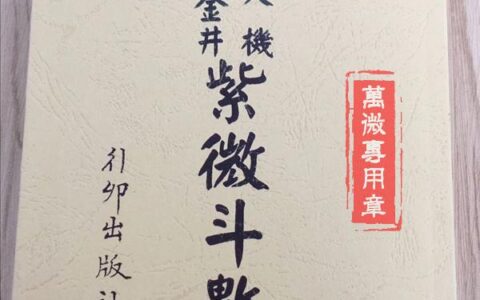 萬微專用章
機
金井
紫微斗數
卯出版社